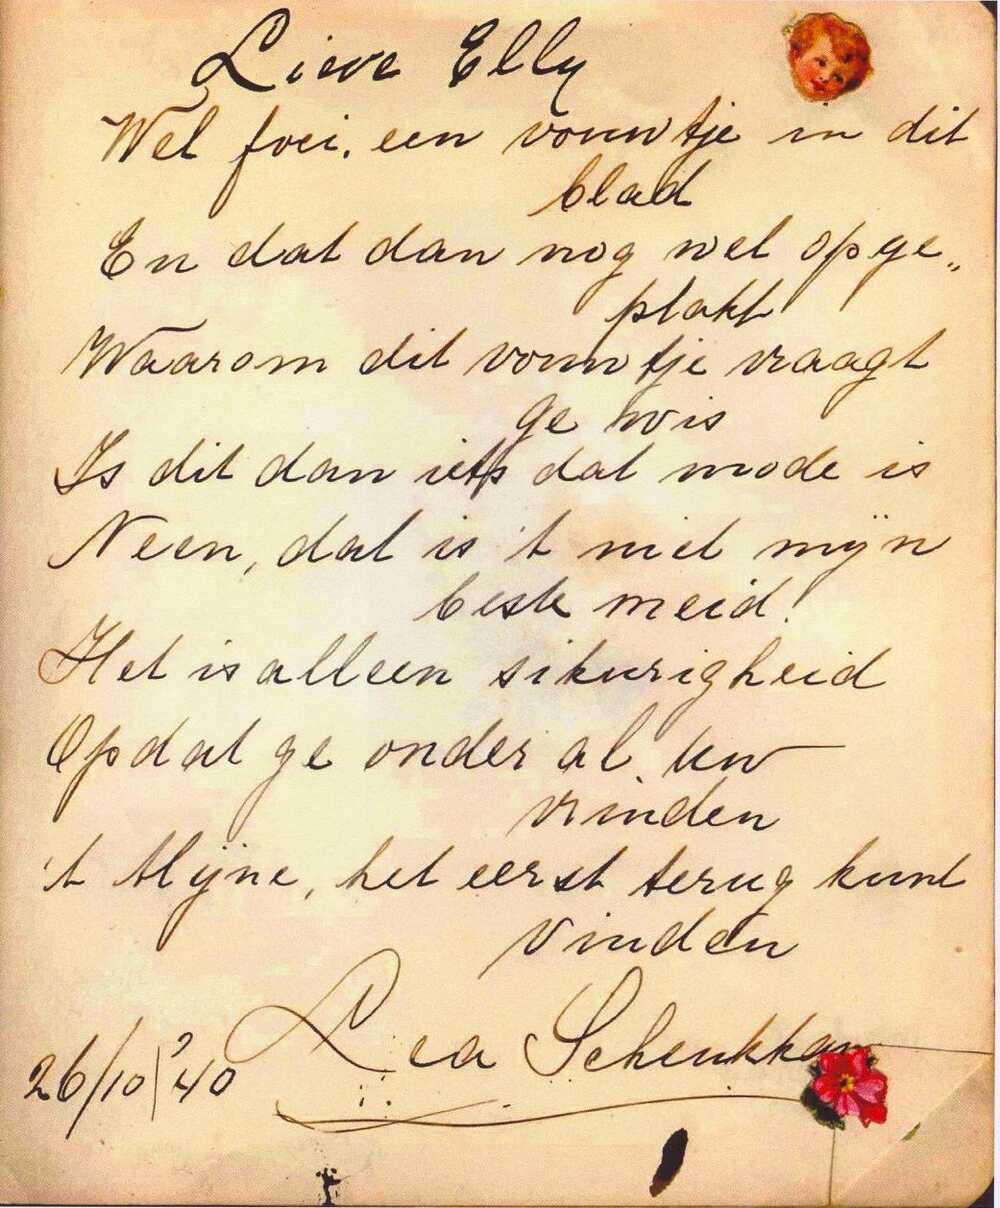 Lieve Elly
Wel foei, een vouwtje in dit
blad
En dat dan nog wel opge„
plakt
Waarom dit vouwtje vraagt
ge wis
Is dit dan iets dat mode is
Neen, dat is 't niet mijn
beste meid!
Het is alleen sikurigheid
Opdat ge onder al uw
vrinden
't Mijne, het eerst terug kunt
vinden
Lea Schenkkan
26/10 '40